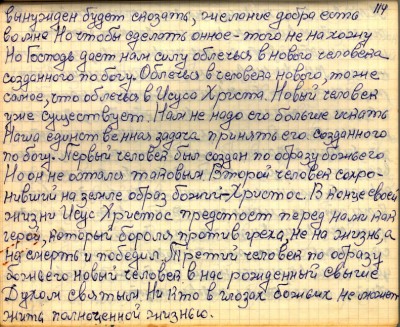 114
вынужден будет сказать, желание добра есть
во мне Но чтобы сделать онное - того не нахожу
Но Господь дает нам силу облечься в нового человека
созданного по богу. Облечься в человека нового, тоже
самое, что облечься в Исуса Христа. Новый человек
уже существует. Нам не надо его больше искать
Наша единственная задача принять его. созданного
по богу. Первый человек был создан по образу божьего
Но он не остался таковым. Второй человек сохро-
нивший на земле образ божий - Христос. В конце своей
жизни Исус Христос предстоет перед нами как
герой, который боролся против греха, не на жизнь, а
на смерть и победил. Третий человек по образу
божьего новый человек в нас рожденный свыше
Духом святым. Ни кто в глазах божьих не может
жить полноценной жизнью.